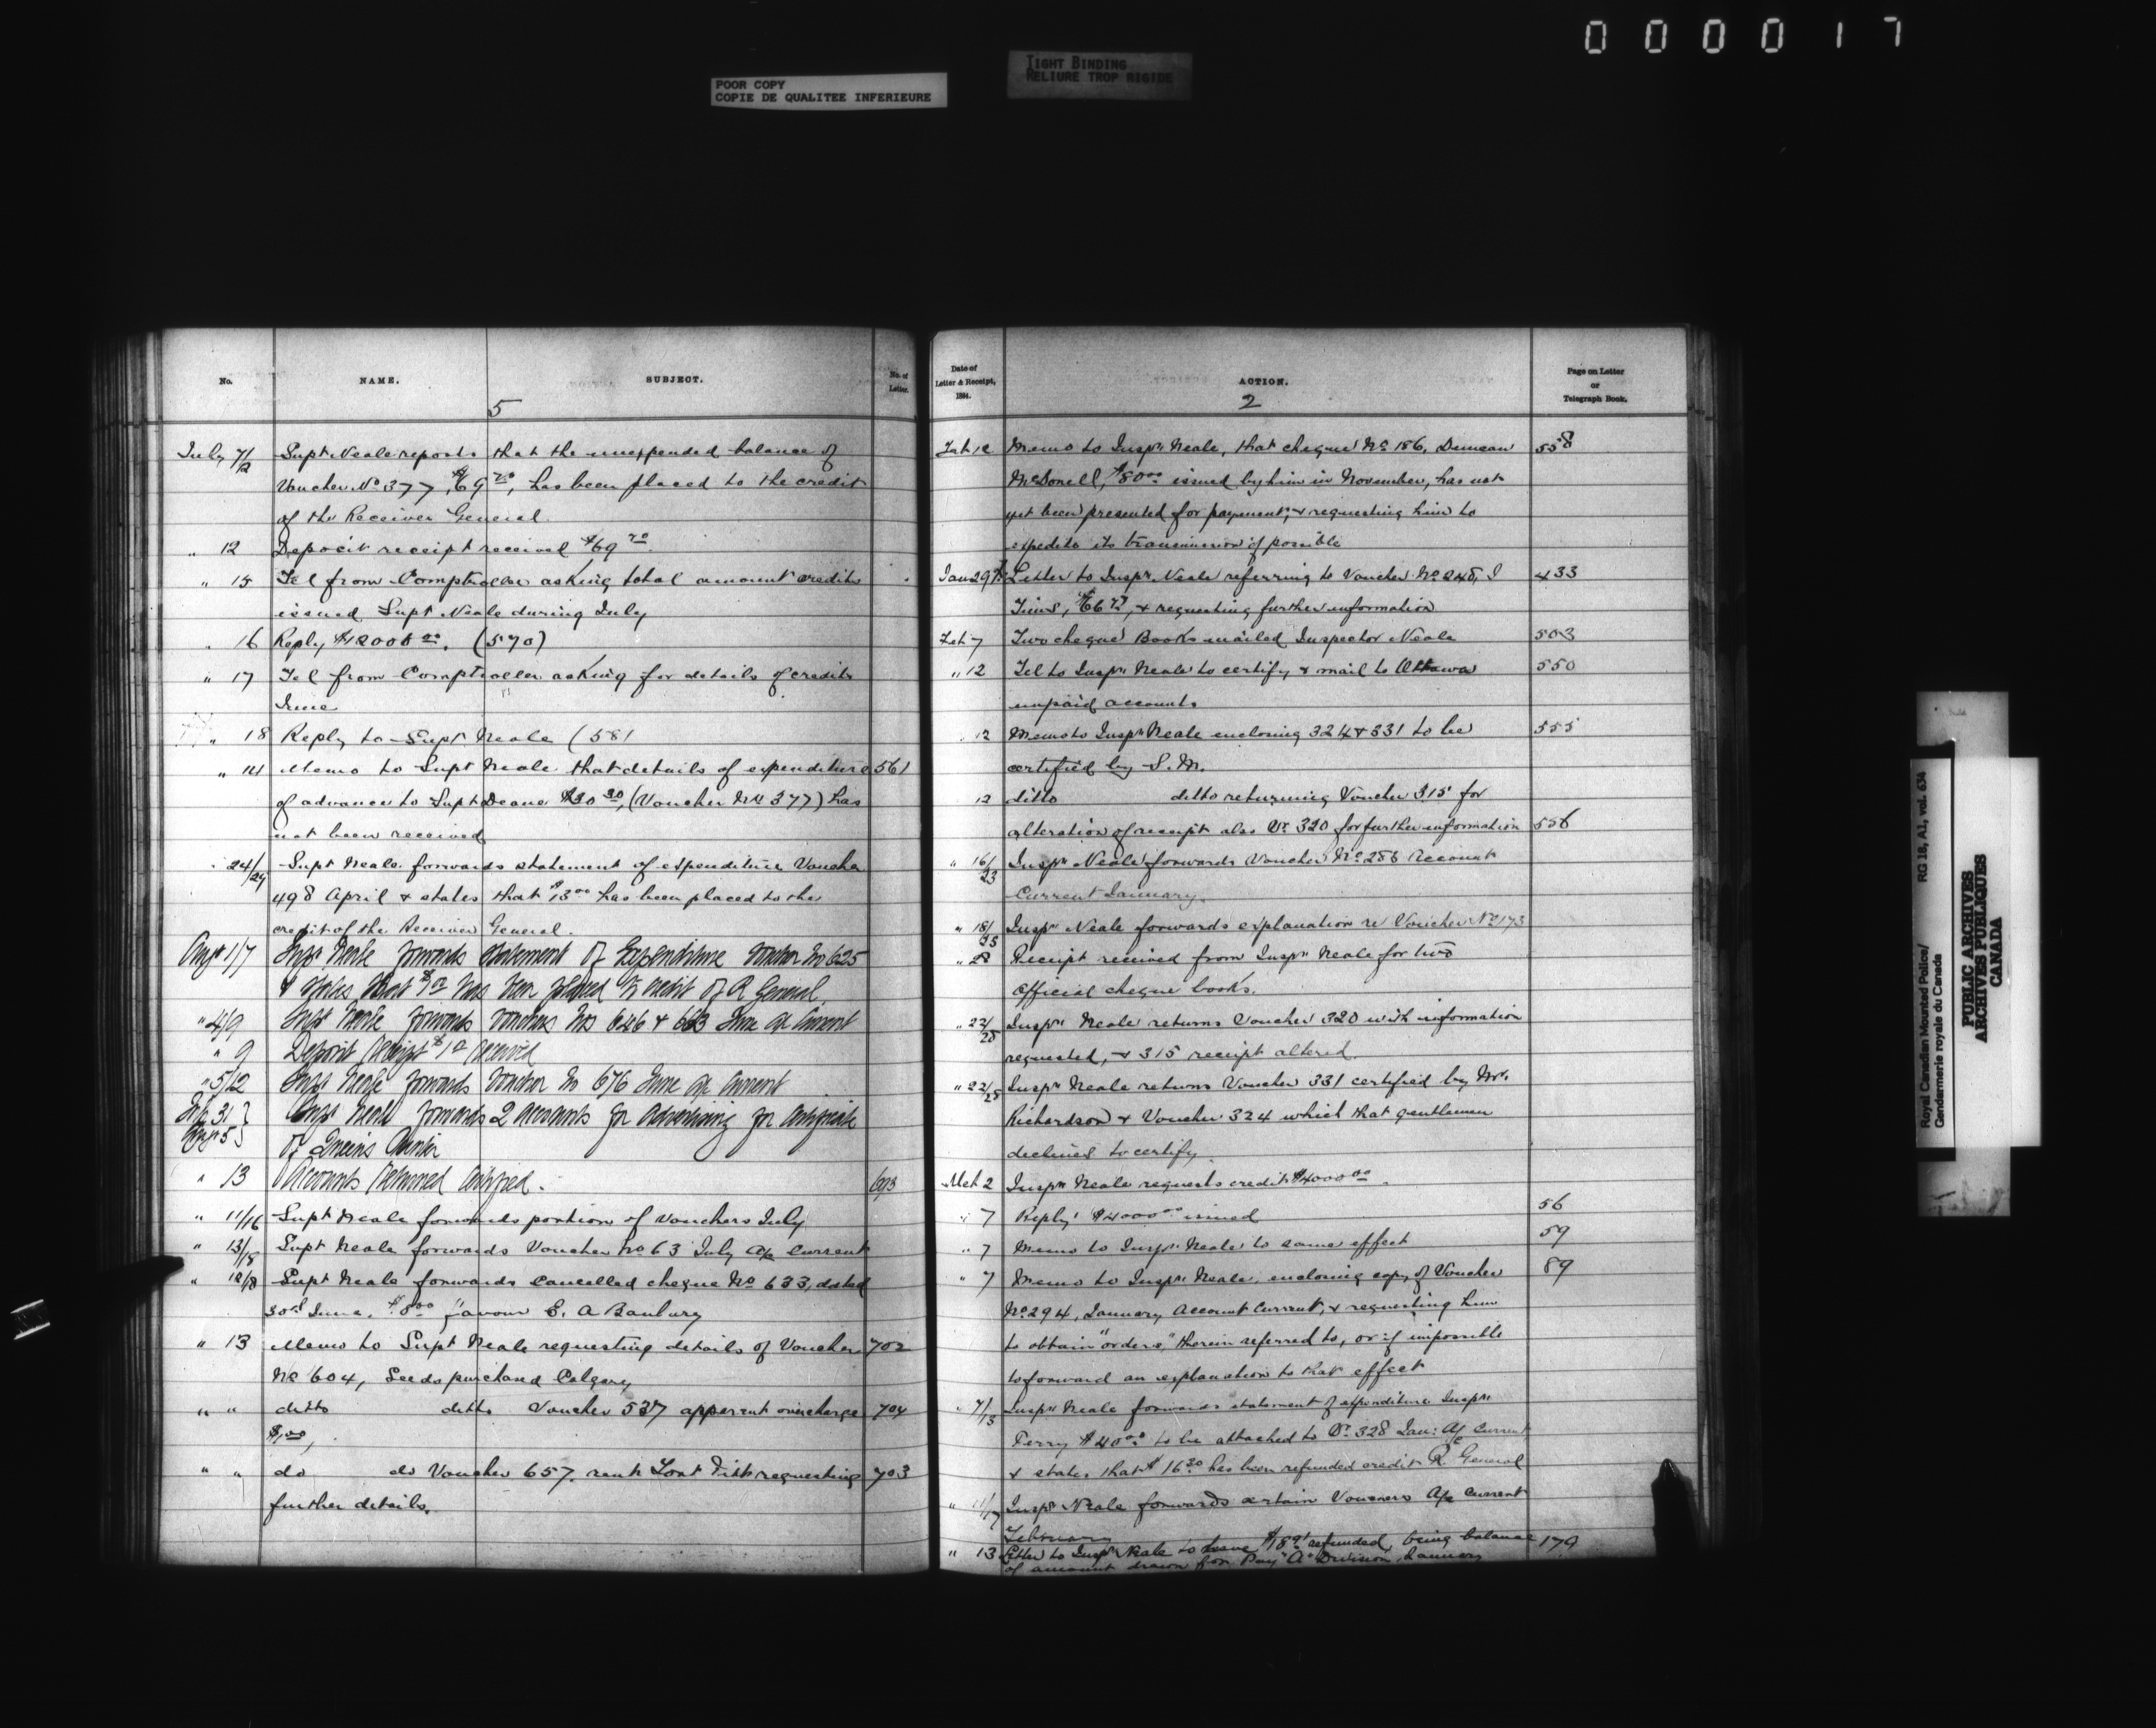 000017
POOR COPY
COPIE DE QUALITEE INFERIEURE
TIGHT BINDING
RELIURE TROP RIGIDE
No. NAME. SUBJECT. No. of Letter.
5
July 7/12 Supt Neale reports that the unexpended balance of
Voucher No 377, $69 70, has been placed to the credit
of the Receiver General.
" 12 Deposit receipt received $69 70
" 15 Tel from Comptroller asking total amount credits
issued Supt Neale during July
" 16 Reply $12008 00. (570)
" 17 Tel from Comptroller asking for details of credits
June
" 18 Reply to Supt Neale (581
" 14 Memo to Supt Neale that details of expenditure 561
of advance to Supt Deane (Voucher No 377) has
not been received
" 24/29 Supt Neale forwards statement of expenditure Voucher
498 April & states that $13 00 has been placed to the
credit of the Receiver General.
Augt 1/7 Supt Neale forwards statement of Expenditure Voucher No 625
& states that has been placed to credit of R General.
" 4/9 Supt Neale forwards vouchers Nos 646 & 663 June a/c current
" 9 Deposit receipt received
" 5/12 Supt Neale forwards Voucher No 676 June a/c current
July 31 } Supt Neale forwards 2 accounts for advertising for certificate
Augt 5 } of Queens Printer
" 13 Accounts returned certified. 693
" 11/16 Supt Neale forwards portion of vouchers July
" 13/18 Supt Neale forwards Voucher No 63 July a/c current
" 12/18 Supt Neale forwards cancelled cheque No 633, dated
30th June, $8 00 favour E. A Banbury
" 13 Memo to Supt Neale requesting details of Voucher 702
No 604, Seeds purchased Calgary
" " ditto ditto Voucher 537 apparent overcharge 704
$1.00,
" " do do Voucher 657. requesting 703
further details.
Date of Letter & Receipt, 1884. ACTION. Page on Letter or Telegraph Book.
2
Feb 12 Memo to Inspr Neale, that cheque No 186, Duncan 558
McDonell, $80 00 issued by him in November, has not
yet been presented for payment, & requesting him to
expedite its transmission if possible
Jan 29th Letter to Inspr. Neale referring to Voucher No 248, J 433
Tims, & requesting further information
Feb 7 Two cheque Books mailed Inspector Neale 503
" 12 Tel to Inspr Neale to certify & mail to Ottawa 550
unpaid accounts
" 12 Memo to Inspr Neale enclosing 324 & 331 to be 555
certified by S.M.
12 ditto ditto returning Voucher 315 for
alteration of receipt also Vr. 320 for further information 556
" 16/23 Inspr Neale forwards Voucher No 286 Account
Current January.
" 18/25 Inspr Neale forwards explanation re Voucher No 173
" Receipt received from Inspr Neale for two
official cheque books.
" 22/28 Inspr Neale returns Voucher 320 with information
requested, & 315 receipt altered.
" 22/28 Inspr Neale returns Voucher 331 certified by Mr.
Richardson & Voucher 324 which that gentleman
declines to certify.
Mch 2 Inspr Neale requests credit $4000 00.
" 7 Reply $4000 00 issued 56
" 7 Memo to Inspr Neale to same effect 59
" 7 Memo to Inspr Neale, enclosing copy of Voucher 89
No 294, January Account Current, & requesting him
to obtain "orders" therein referred to, or if impossible
to forward an explanation to that effect
" 7/13 Inspr Neale forwards statement of expenditure Inspr
Perry $40 00 to be attached to Vr. 328 Jan: A/c Current
& states that $16 30 has been refunded credit R General
" 11/17 Inspr Neale forwards certain Vouchers A/c Current
February
" 13 Letter to Inspr Neale to have refunded, being balance 179
of amount drawn for Pay "A" Division January
Royal Canadian Mounted Police/ RG 18, A1, vol. 634
Gendarmerie royale du Canada
PUBLIC ARCHIVES
ARCHIVES PUBLIQUES
CANADA